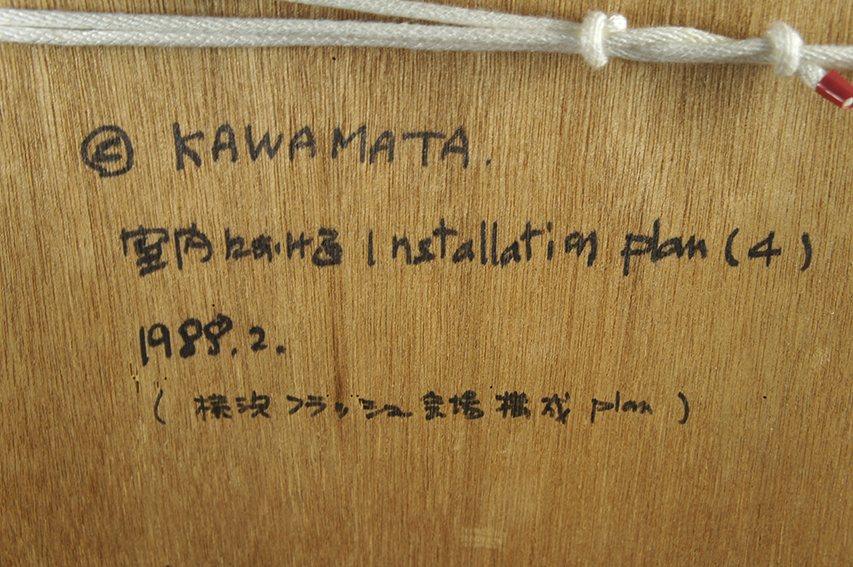 © KAWAMATA.
室内における Installation plan (4)
1988.2.
( 横浜フラッシュ会場構成 plan )